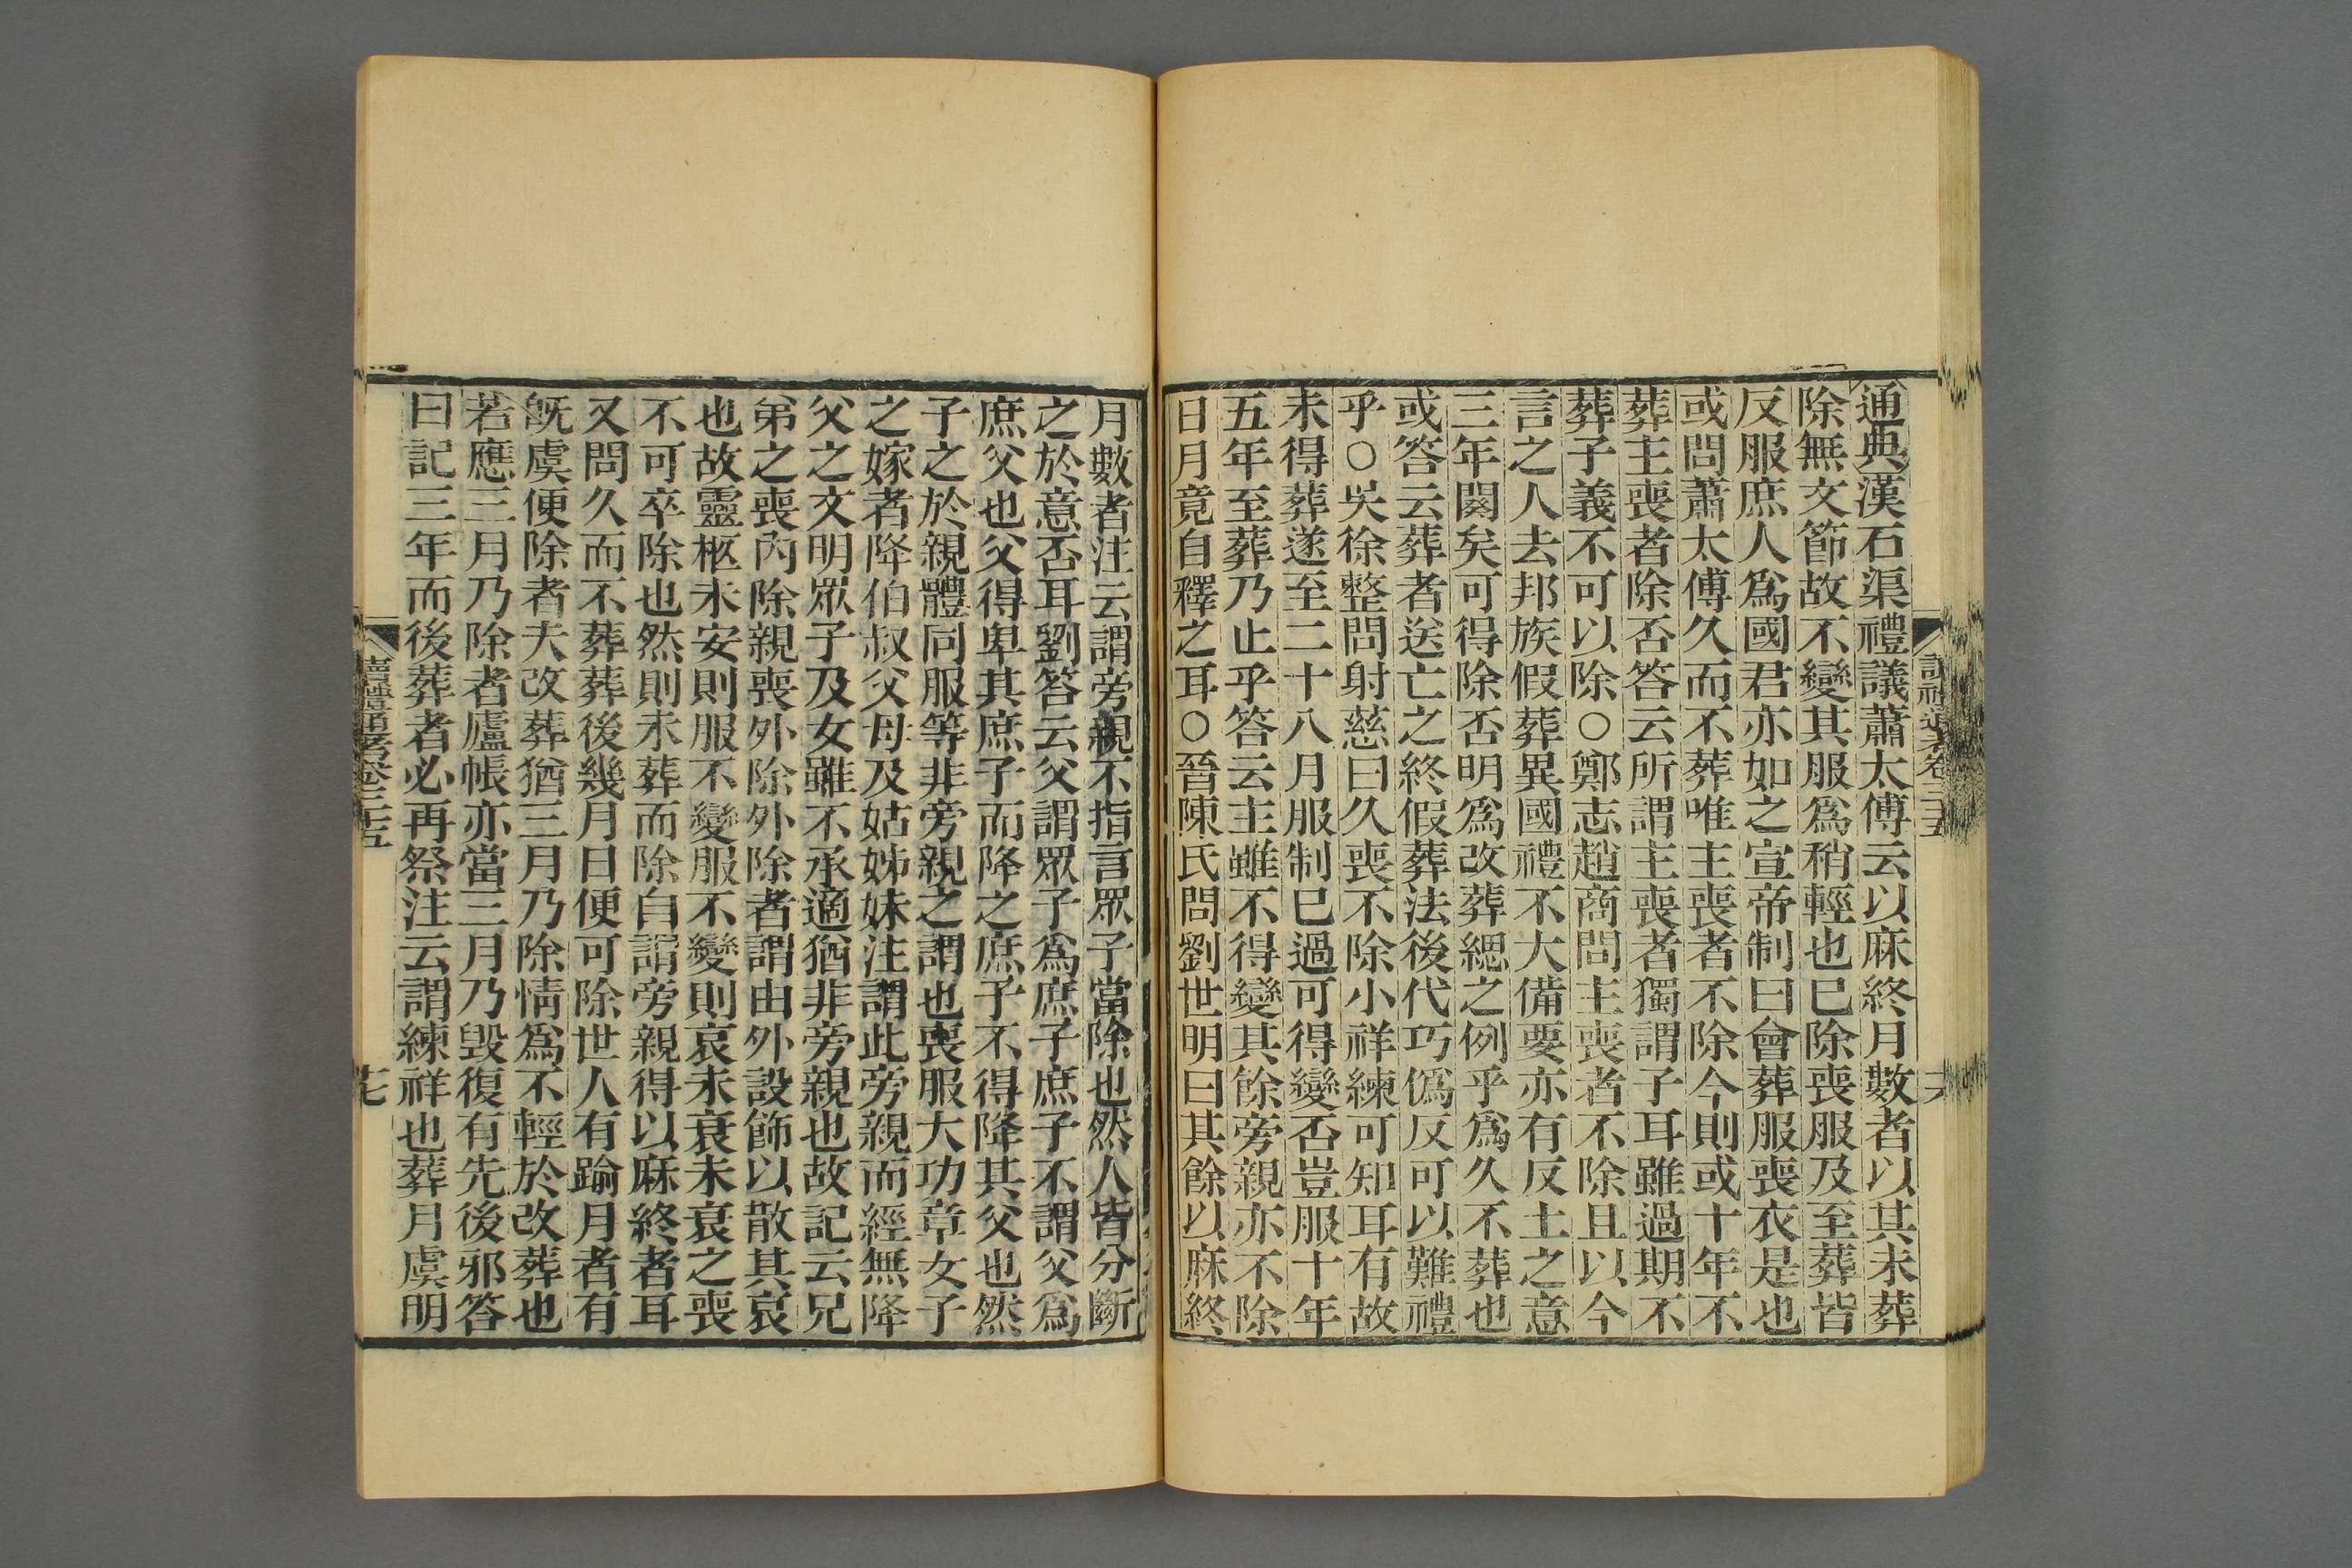 通典漢石渠禮議蕭太傅云以麻終月數者以其未葬
除無文節故不變其服爲稍輕也已除喪服及至葬皆
反服庶人爲國君亦如之宣帝制曰會葬服喪衣是也
或問蕭太傅久而不葬唯主喪者不除今則或十年不
葬主喪者除否答云所謂主喪者獨謂子耳雖過期不
葬子義不可以除○鄭志趙商問主喪者不除且以今
言之人去邦族假葬異國禮不大備要亦有反土之意
三年闋矣可得除否明爲改葬緦之例乎爲久不葬也
或答云葬者送亡之終假葬法後代巧僞反可以難禮
乎○吳徐整問射慈曰久喪不除小祥練可知耳有故
未得葬遂至二十八月服制已過可得變否豈服十年
五年至葬乃止乎答云主雖不得變其餘旁親亦不除
日月竟自釋之耳○晉陳氏問劉世明曰其餘以麻終
月數者注云謂旁親不指言眾子當除也然人皆分斷
之於意否耳劉答云父謂眾子爲庶子庶子不謂父爲
庶父也父得卑其庶子而降之庶子不得降其父也然
子之於親體同服等非旁親之謂也喪服大功章女子
之嫁者降伯叔父母及姑姊妹注謂此旁親而經無降
父之文明眾子及女雖不承適猶非旁親也故記云兄
弟之喪內除親喪外除外除者謂由外設飾以散其哀
也故靈柩未安則服不變服不變則哀未衰未衰之喪
不可卒除也然則未葬而除自謂旁親得以麻終者耳
又問久而不葬葬後幾月日便可除世人有踰月者有
旣虞便除者夫改葬猶三月乃除情爲不輕於改葬也
若應三月乃除者廬帳亦當三月乃毁復有先後邪答
曰記三年而後葬者必再祭注云謂練祥也葬月虞明
讀禮通考卷三十五
十七